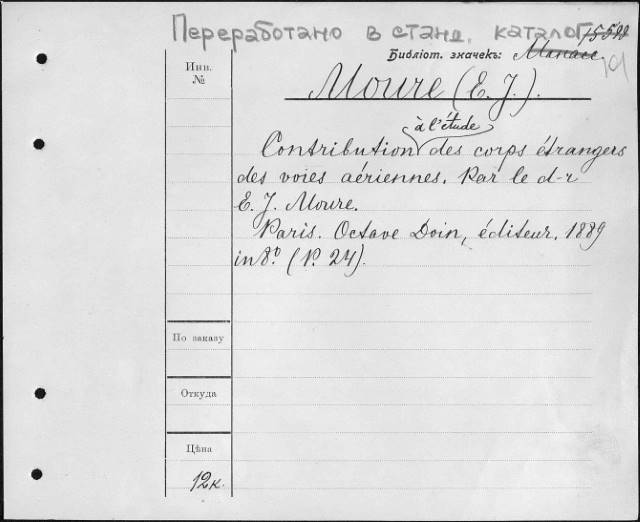 Переработано в станд. каталог
Инв. №
Библіот. значекъ:
Moure (E. J.).
à l'étude
Contribution des corps étrangers
des voies aériennes. Par le d-r
E. J. Moure.
Paris. Octave Doin, éditeur. 1889
in 8º (P. 24).
По заказу
Откуда
Цѣна
12к.